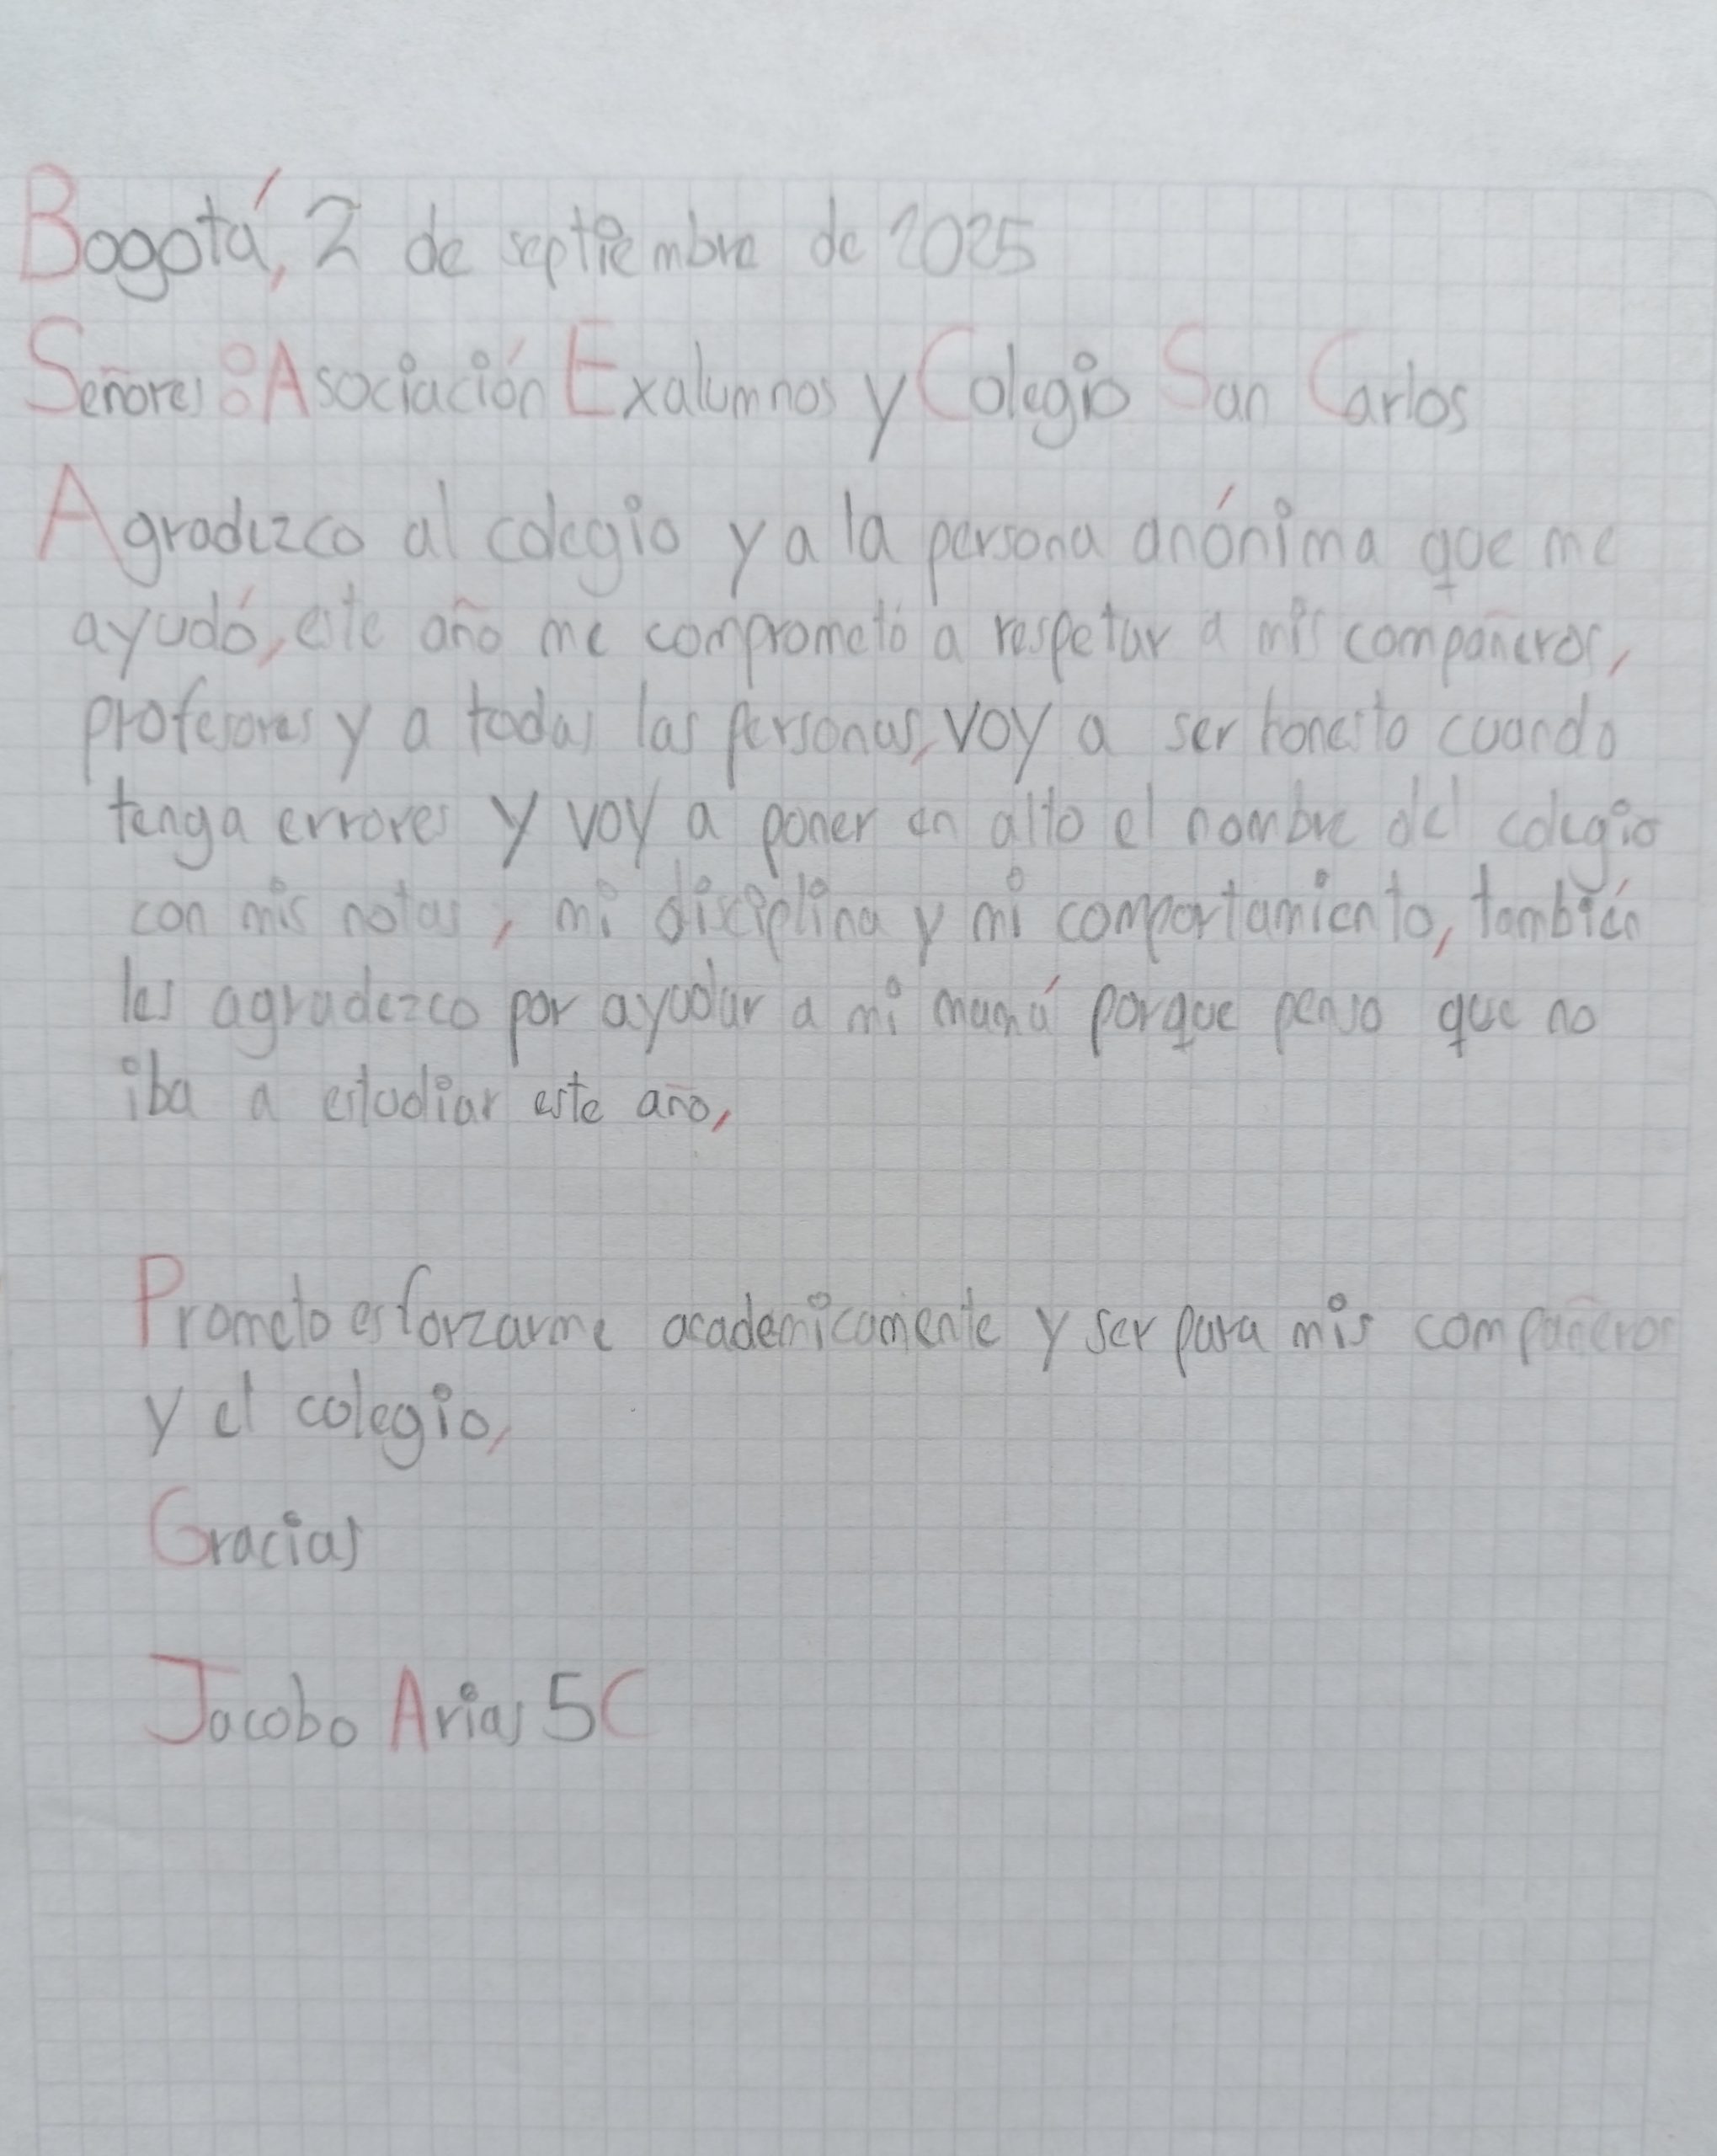 Bogotá, 2 de septiembre de 2025
Señores: Asociación Exalumnos y Colegio San Carlos
Agradezco al colegio y a la persona anónima que me
ayudó, este año me comprometó a respetar a mis compañeros,
profesores y a todas las personas, voy a ser honesto cuando
tenga errores y voy a poner en alto el nombre del colegio
con mis notas, mi disciplina y mi comportamiento, también
les agradezco por ayudar a mi mamá porque penso que no
iba a estudiar este año,
Prometo esforzarme academicamente y ser para mis compañeros
y el colegio,
Gracias
Jacobo Arias 5C